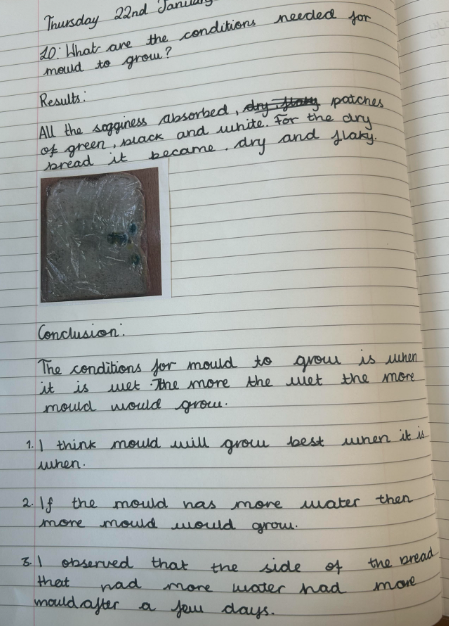 Thursday 22nd January
LO: What are the conditions needed for
mould to grow?
Results:
All the sogginess absorbed, dry flaky patches
of green, black and white. For the dry
bread it became, dry and flaky.
Conclusion:
The conditions for mould to grow is when
it is wet. The more the wet the more
mould would grow.
1. I think mould will grow best when it is
when.
2. If the mould has more water then
more mould would grow.
3. I observed that the side of the bread
that had more water had more
mould after a few days.